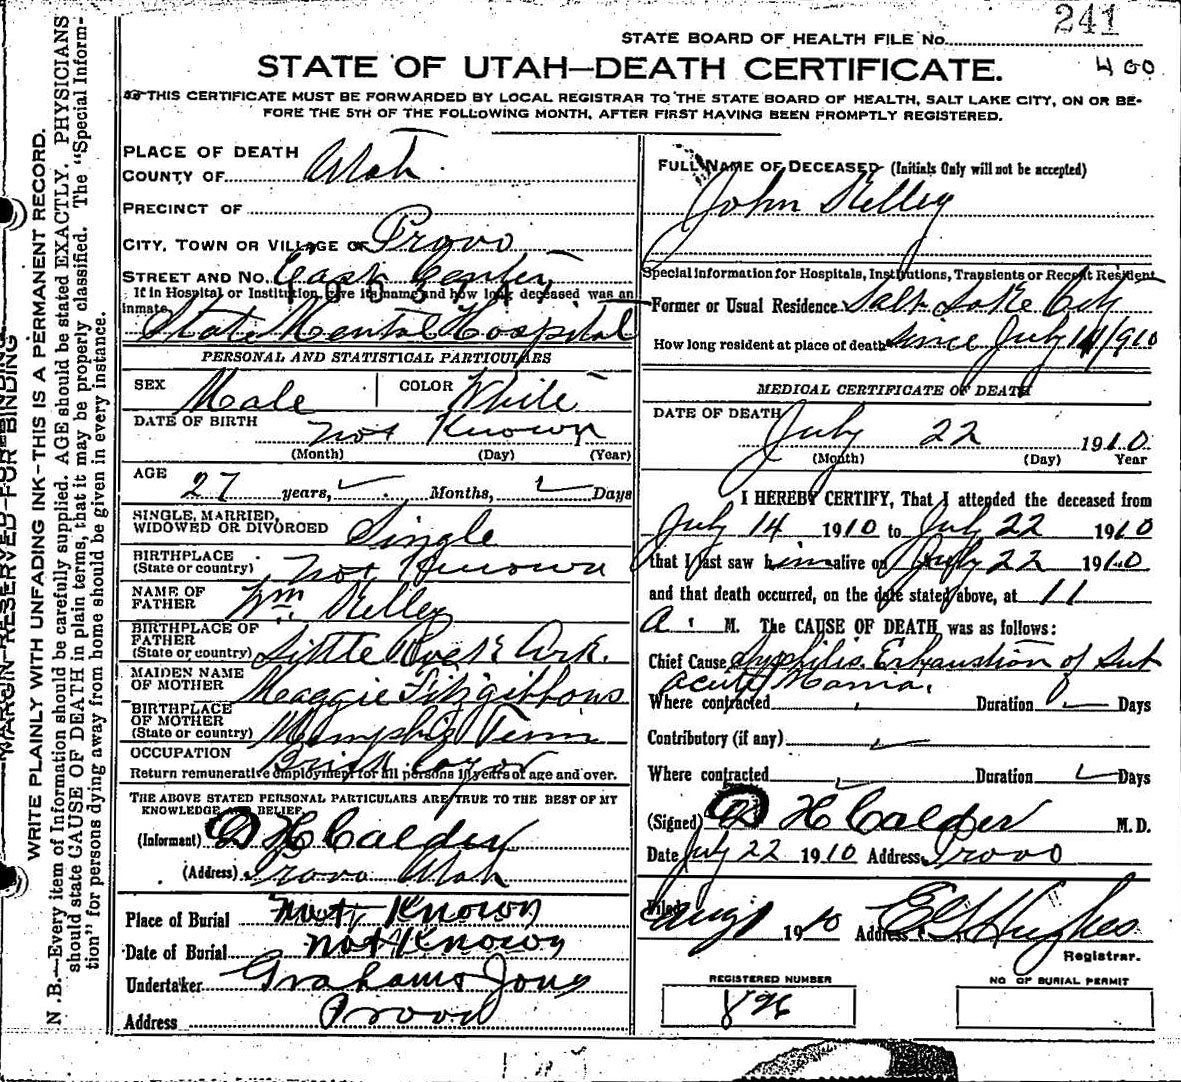 241
STATE BOARD OF HEALTH FILE No.
STATE OF UTAH—DEATH CERTIFICATE.
400
THIS CERTIFICATE MUST BE FORWARDED BY LOCAL REGISTRAR TO THE STATE BOARD OF HEALTH, SALT LAKE CITY, ON OR BE-
FORE THE 5TH OF THE FOLLOWING MONTH, AFTER FIRST HAVING BEEN PROMPTLY REGISTERED.
PLACE OF DEATH
COUNTY OF Utah
PRECINCT OF
CITY, TOWN OR VILLAGE OF Provo
STREET AND No. East Center
If in Hospital or Institution, give its name and how long deceased was an
inmate
State Mental Hospital
PERSONAL AND STATISTICAL PARTICULARS
SEX Male COLOR White
DATE OF BIRTH not Known
(Month) (Day) (Year)
AGE 27 years, Months, Days
SINGLE, MARRIED,
WIDOWED OR DIVORCED Single
BIRTHPLACE
(State or country) not Known
NAME OF
FATHER Wm. Kelley
BIRTHPLACE OF
FATHER
(State or country) Little Rock Ark.
MAIDEN NAME
OF MOTHER Maggie Fitzgibbons
BIRTHPLACE
OF MOTHER
(State or country) Memphis Tenn
OCCUPATION Brick layer
Return remunerative employment for all persons 10 years of age and over.
THE ABOVE STATED PERSONAL PARTICULARS ARE TRUE TO THE BEST OF MY
KNOWLEDGE AND BELIEF.
(Informant) D H Calder
(Address) Provo Utah
Place of Burial Not Known
Date of Burial not Known
Undertaker Graham & Jones
Address Provo
FULL NAME OF DECEASED (Initials Only will not be accepted)
John Kelley
Special information for Hospitals, Institutions, Transients or Recent Resident
Former or Usual Residence Salt Lake City
How long resident at place of death since July 14/910
MEDICAL CERTIFICATE OF DEATH
DATE OF DEATH
July 22 1910
(Month) (Day) Year
I HEREBY CERTIFY, That I attended the deceased from
July 14 1910 to July 22 1910
that I last saw him alive on July 22 1910
and that death occurred, on the date stated above, at 11
A. M. The CAUSE OF DEATH was as follows:
Chief Cause Syphilis. Exhaustion of Sub
acute Mania.
Where contracted Duration Days
Contributory (if any)
Where contracted Duration Days
(Signed) D H Calder M.D.
Date July 22 1910 Address Provo
Filed Aug 1 1910 Address E G Hughes
Registrar.
REGISTERED NUMBER
896
NO OF BURIAL PERMIT
MARGIN RESERVED FOR BINDING
WRITE PLAINLY WITH UNFADING INK—THIS IS A PERMANENT RECORD.
N. B.—Every item of Information should be carefully supplied. AGE should be stated EXACTLY. PHYSICIANS
should state CAUSE OF DEATH in plain terms, that it may be properly classified. The "Special Inform-
tion" for persons dying away from home should be given in every instance.